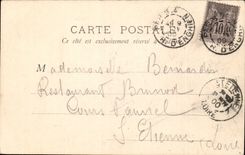 CARTE POSTALE
Ce côté est exclusivement réservé à l'adresse
Mademoiselle Bernardin
Restaurant Brunod
Cours Fauriel
St Etienne
Loire